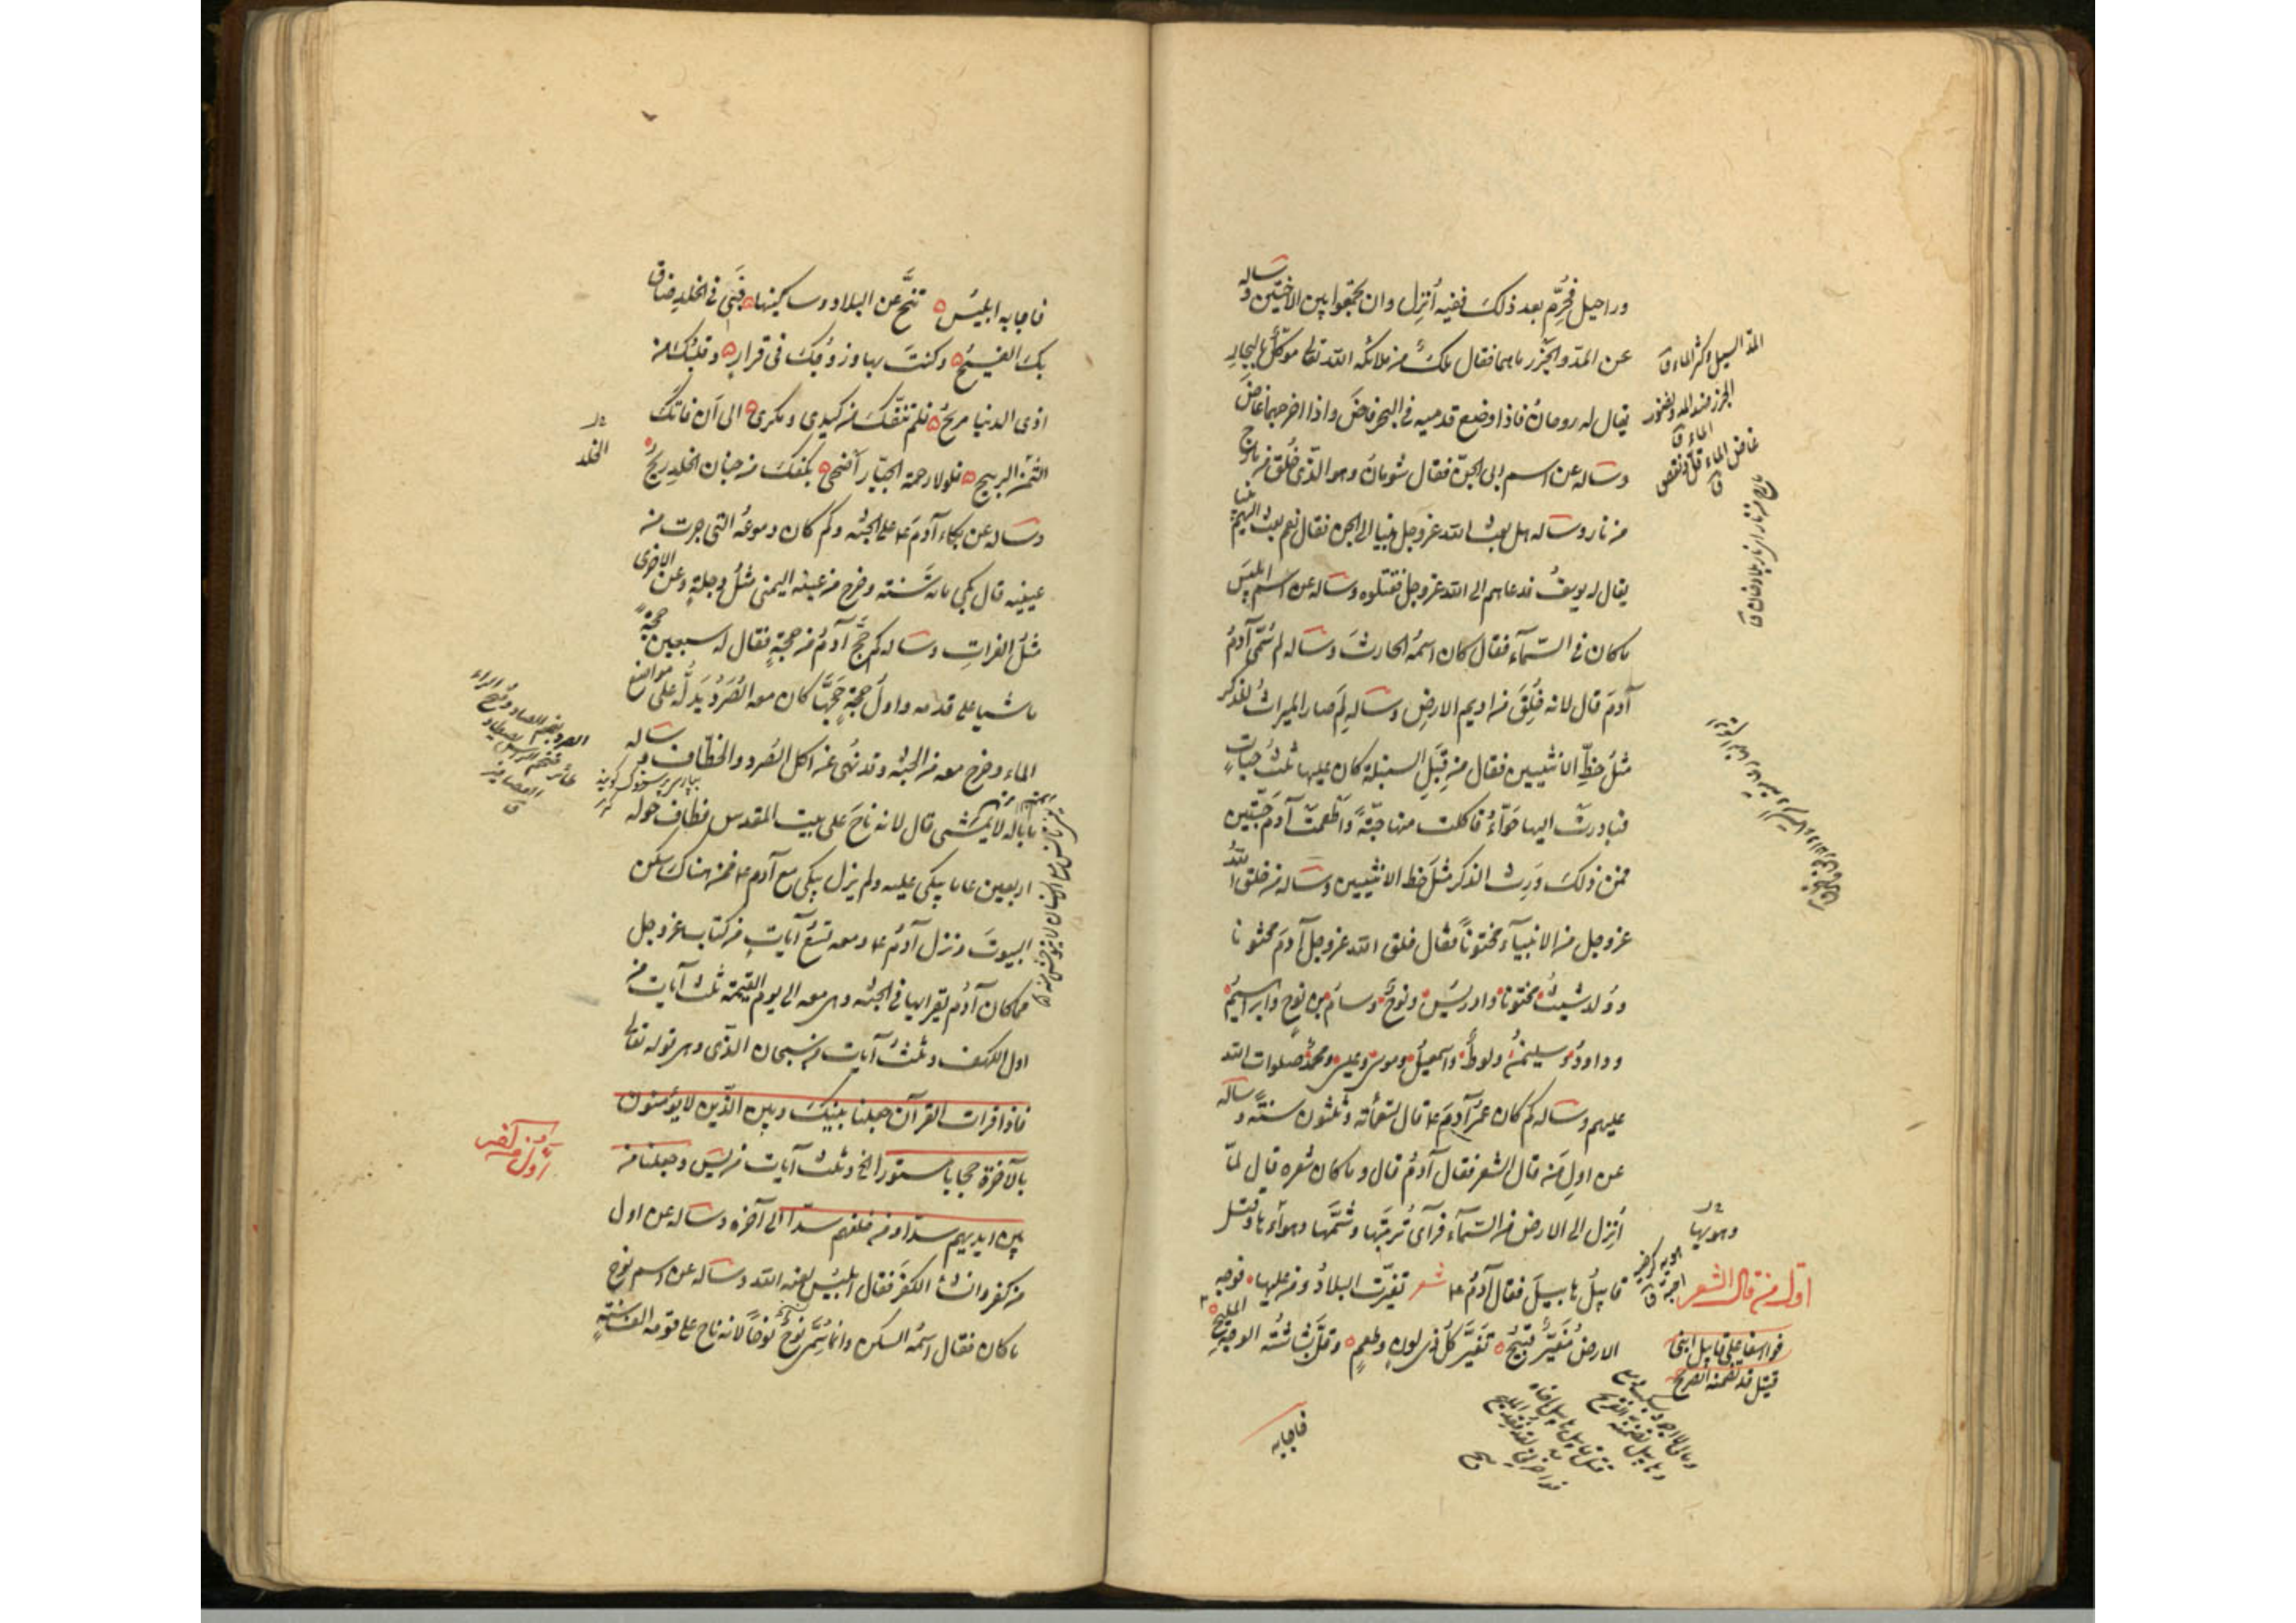 وراحيل فحرم بعد ذلك ففيه أنزل وان تجمعوا بين الاختين وساله
عن المد والجزر ماهما فقال ملك من ملائكة الله تعالى موكل بالبحار
يقال له رومان فاذا وضع قدميه في البحر فاض واذا اخرجهما غاض
وساله عن اسم ابي الجن فقال شومان وهو الذي خلق من مارج
من نار وساله هل بعث الله عز وجل نبيا الى الجن فقال نعم بعث اليهم نبيا
يقال له يوسف فدعاهم الى الله عز وجل فقتلوه وساله عن اسم ابليس
ما كان في السماء فقال كان اسمه الحارث وساله لم سمي آدم
آدم قال لانه خلق من اديم الارض وساله لم صار الميراث للذكر
مثل حظ الانثيين فقال من قبل السنبلة كان عليها ثلث حبات
فبادرت اليها حواء فاكلت منها حبة واطعمت آدم حبتين
فمن ذلك ورث الذكر مثل حظ الانثيين وساله من خلق الله
عز وجل من الانبياء مختونا فقال خلق الله عز وجل آدم مختونا
وولد شيث مختونا وادريس ونوح وسام بن نوح وابراهيم
وداود وسليمن ولوط واسمعيل وموسى وعيسى ومحمد صلوات الله
عليهم وساله كم كان عمر آدم ع قال تسعمائة وثلثون سنة وساله
عن اول من قال الشعر فقال آدم قال وما كان شعره قال لما
أنزل الى الارض من السماء فرآى تربتها وشمها وهواءها وقتل
قابيل هابيل فقال آدم ع شعر تغيرت البلاد ومن عليها فوجه
الارض مغبر قبيح تغير كل ذي لون وطعم وقل بشاشة الوجه المليح
المد السيل وكثر الماء ق
غاض الماء قل ونقص
ق
اول من قال الشعر
وهويها
فوا اسفا على هابيل ابني
قتيل قد تضمنه الضريح
فاجابه
فاجابه ابليس تنح عن البلاد وساكنيها فبي في الخلد ضاق
بك الفسيح وكنت بها وزوجك في قرار وقلبك من
اذى الدنيا مريح فلم تنفك من كيدي ومكري الى ان فاتك
الثمن الربيح فلولا رحمة الجبار اضحى بكفك من جنان الخلد ريح
وساله عن بكاء آدم ع على الجنة وكم كان دموعه التي جرت من
عينيه قال بكى مائة سنة وخرج من عينه اليمنى مثل دجلة وعن الاخرى
مثل الفرات وساله كم حج آدم من حجة فقال له سبعين حجة
ماشيا على قدمه واول حجة حجها كان معه الصرد يدل على مواضع
الماء وخرج معه من الجنة وقد نهى عن اكل الصرد والخطاف وساله
ما باله لا يمشي قال لانه ناح على بيت المقدس فطاف حوله
اربعين عاما يبكي عليه ولم يزل يبكي مع آدم ع فمن هناك سكن
البيوت ونزل آدم ع ومعه تسع آيات من كتاب عز وجل
مما كان آدم يقراها في الجنة وهي معه الى يوم القيمة ثلث آيات من
اول الكهف وثلث آيات من سبحان الذي وهي قوله تعالى
فاذا قرات القرآن جعلنا بينك وبين الذين لا يؤمنون
بالآخرة حجابا مستورا الخ وثلث آيات من يس وجعلنا من
بين ايديهم سدا ومن خلفهم سدا الى آخره وساله عن اول
من كفر وانشا الكفر فقال ابليس لعنه الله وساله عن اسم نوح
ما كان فقال اسمه السكن وانما سمي نوح نوحا لانه ناح على قومه الف سنة
الخلد
اول من كفر